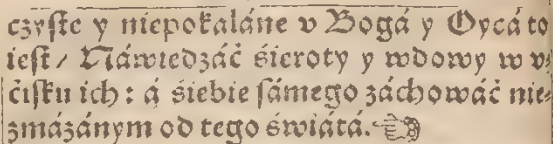 czyſte y niepokaláne v Bogá y Oycá to
ieſt / Náwiedzáć śieroty y wdowy w v⸗
ćiſku ich : á śiebie ſámego záchowáć nie⸗
zmázánym od tego świátá. ☜